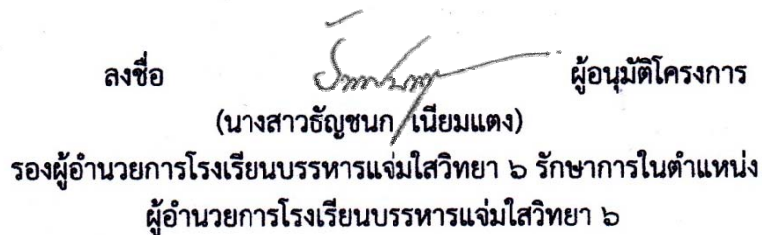 ลงชื่อ ผู้อนุมัติโครงการ
(นางสาวธัญชนก เนียมแตง)
รองผู้อำนวยการโรงเรียนบรรหารแจ่มใสวิทยา ๖ รักษาการในตำแหน่ง
ผู้อำนวยการโรงเรียนบรรหารแจ่มใสวิทยา ๖